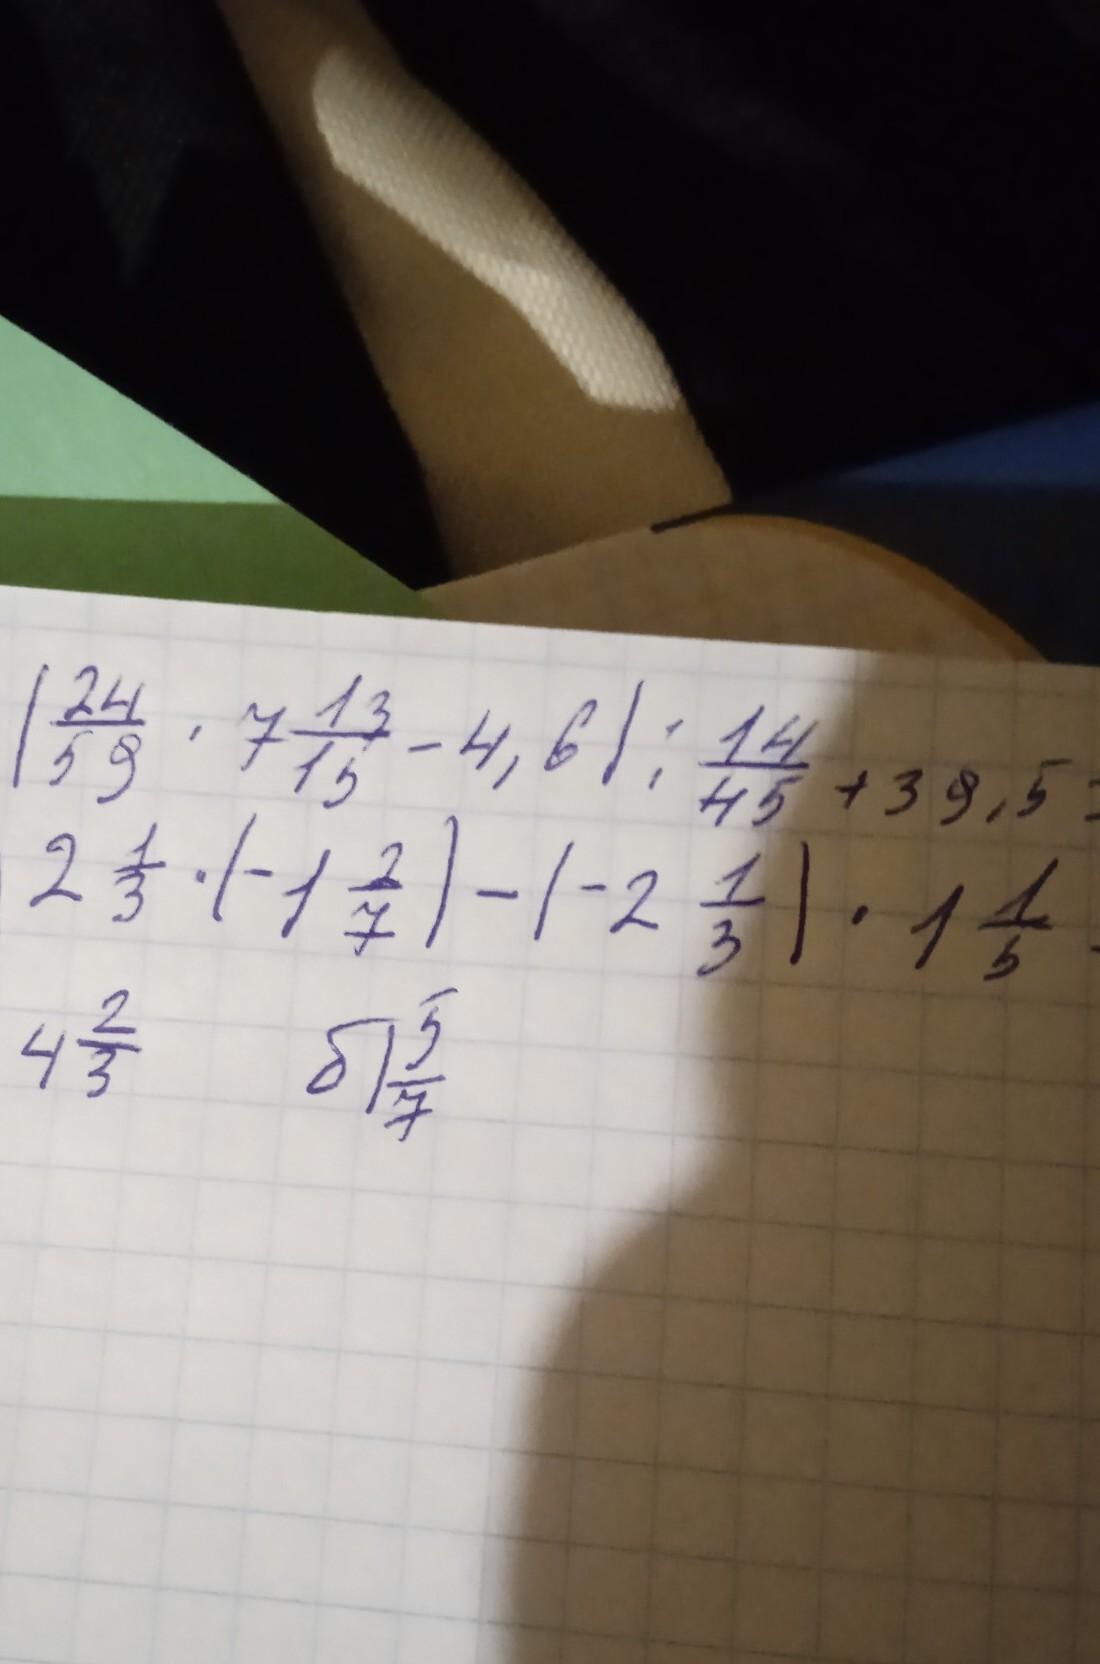 (24/59 · 7 13/15 - 4,6) : 14/45 + 39,5 =
) 2 1/3 · (-1 2/7) - (-2 1/3) · 1 1/5 =
4 2/3 б) 5/7